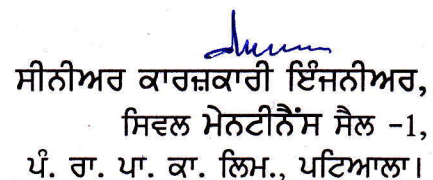 ਸੀਨੀਅਰ ਕਾਰਜ਼ਕਾਰੀ ਇੰਜਨੀਅਰ,
ਸਿਵਲ ਮੇਨਟੀਨੈਂਸ ਸੈਲ -1,
ਪੰ. ਰਾ. ਪਾ. ਕਾ. ਲਿਮ., ਪਟਿਆਲਾ।